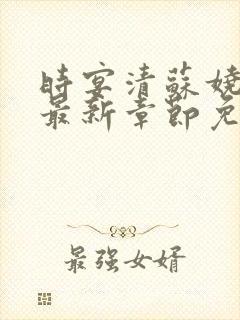 時宴清蘇嬈
最新章節免
最强女婿